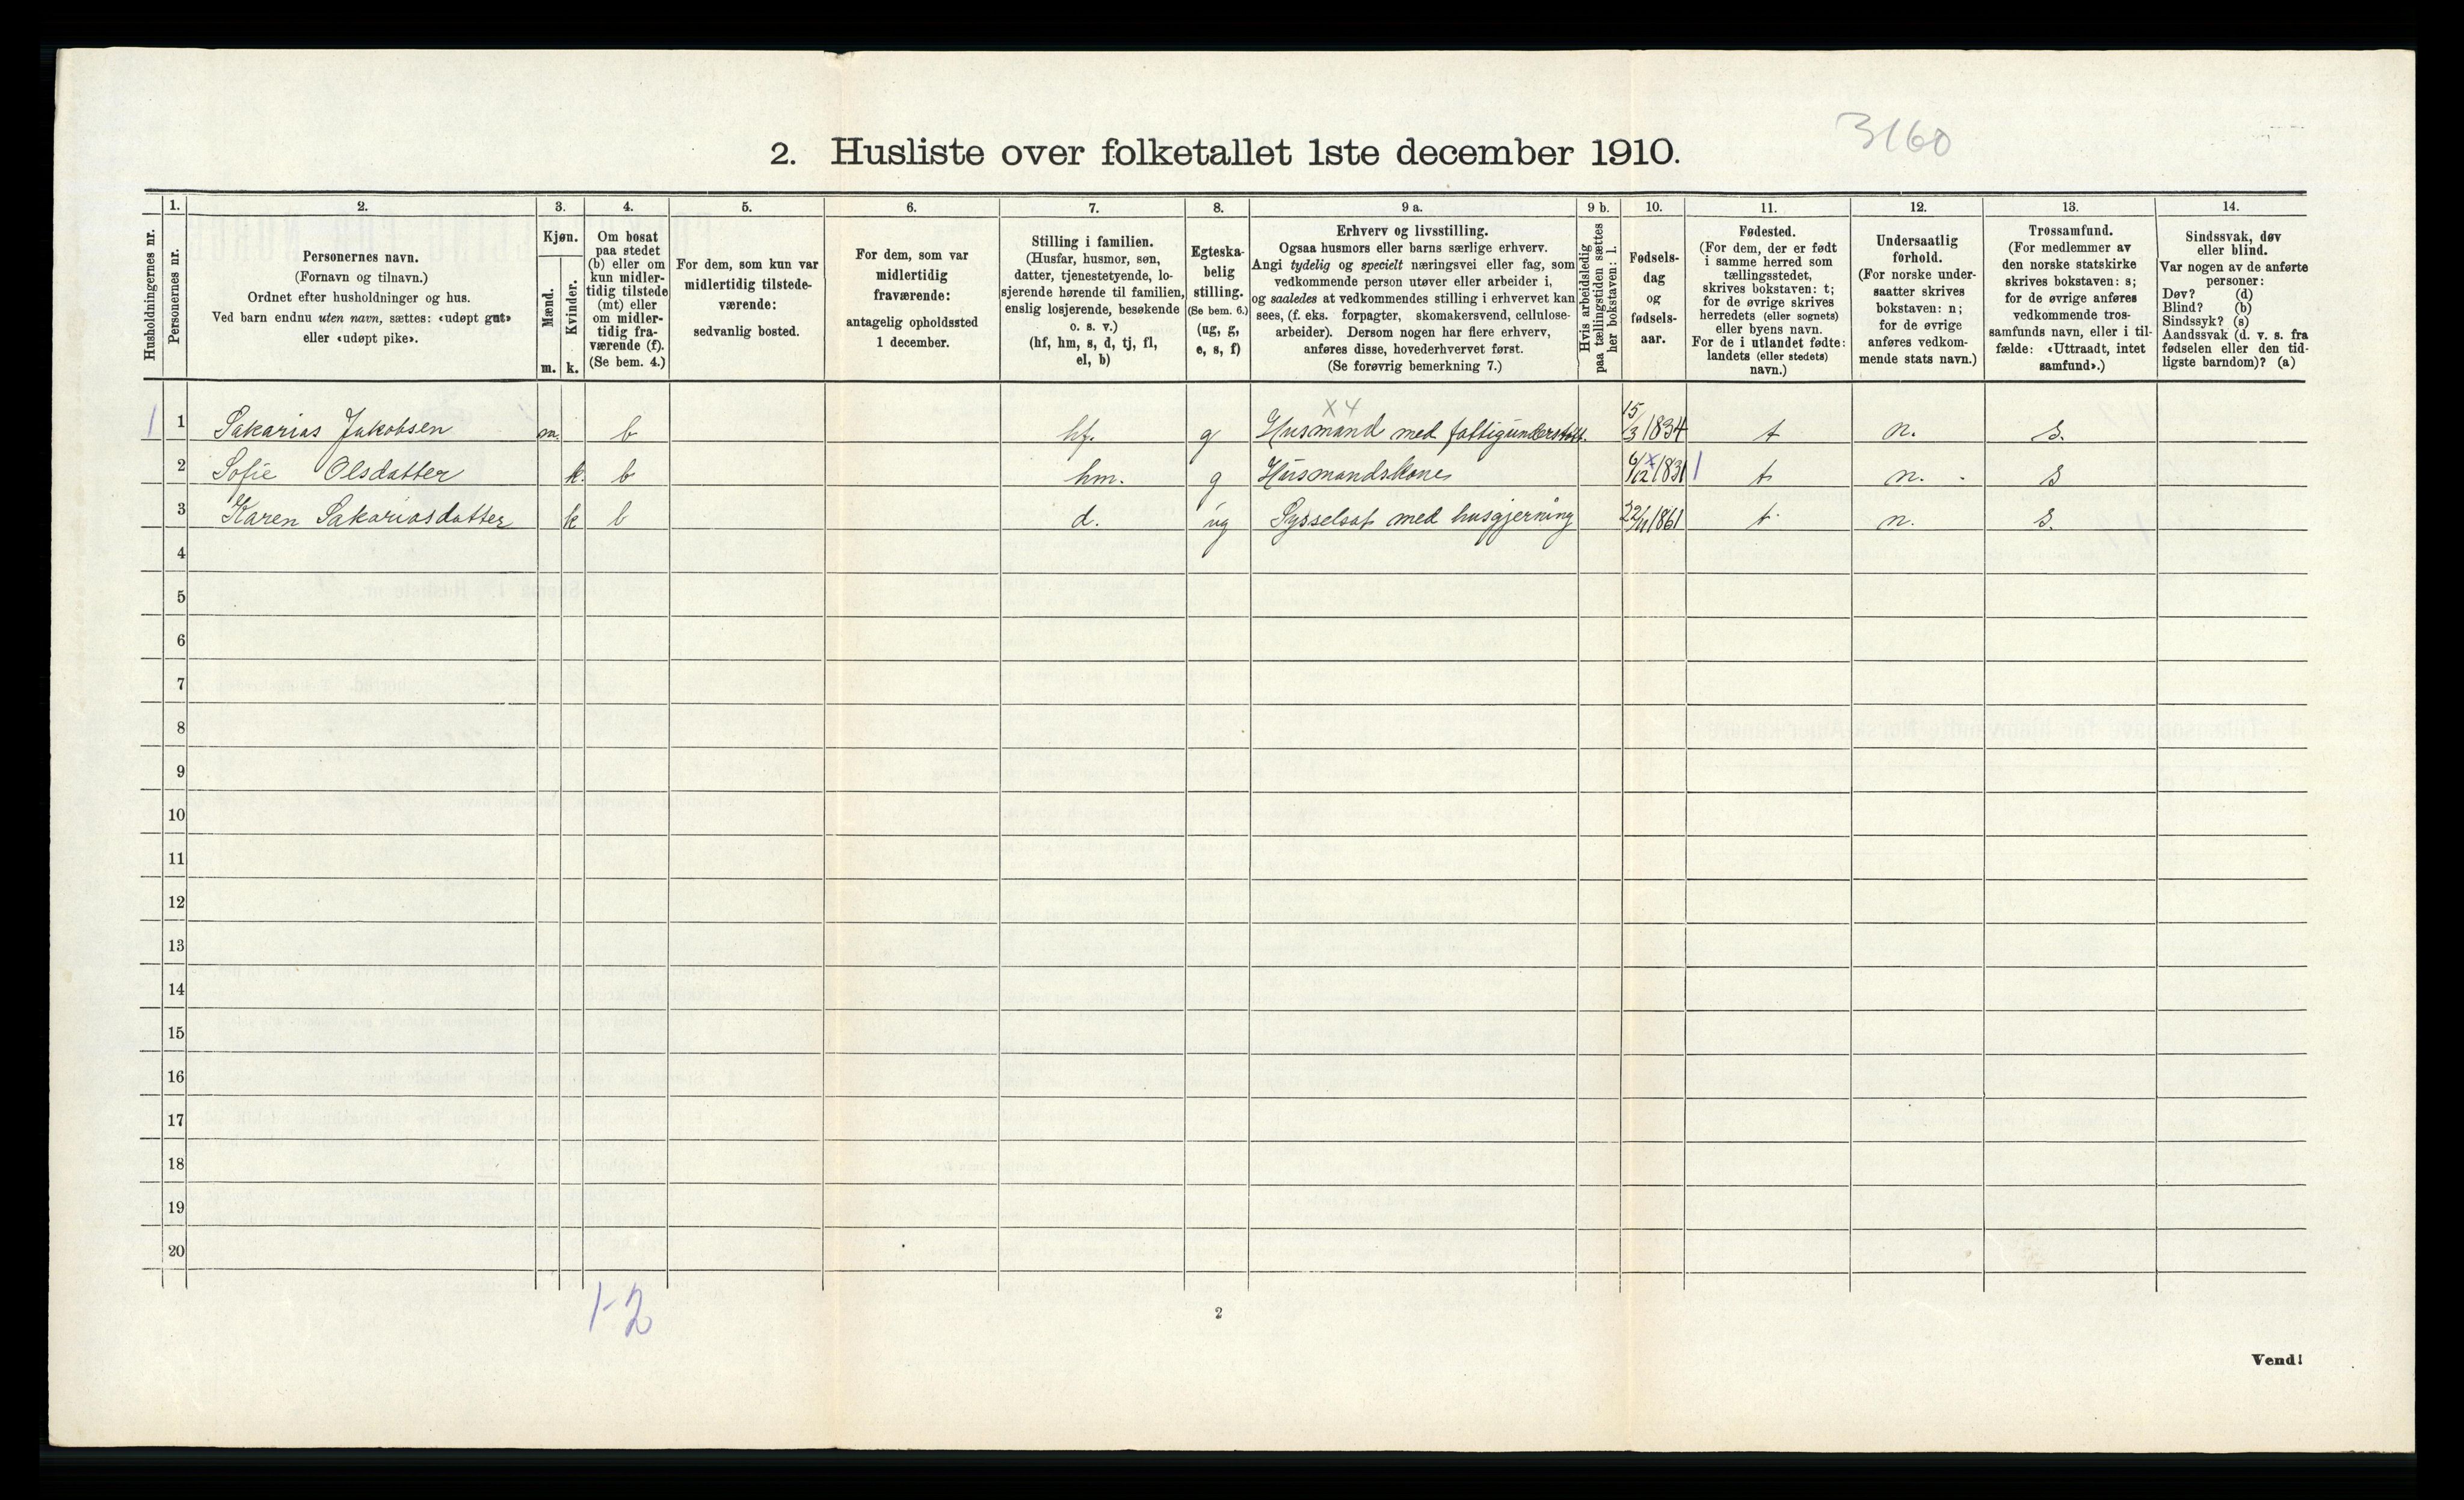 3160
2. Husliste over folketallet 1ste december 1910.
Husholdningernes nr.
1. Personernes nr.
2. Personernes navn.
(Fornavn og tilnavn.)
Ordnet efter husholdninger og hus.
Ved barn endnu uten navn, sættes: «udøpt gut»
eller «udøpt pike».
3. Kjøn.
Mænd. m.
Kvinder. k.
4. Om bosat
paa stedet
(b) eller om
kun midler-
tidig tilstede
(mt) eller
om midler-
tidig fra-
værende (f).
(Se bem. 4.)
5. For dem, som kun var
midlertidig tilstede-
værende:
sedvanlig bosted.
6. For dem, som var
midlertidig
fraværende:
antagelig opholdssted
1 december.
7. Stilling i familien.
(Husfar, husmor, søn,
datter, tjenestetyende, lo-
sjerende hørende til familien,
enslig losjerende, besøkende
o. s. v.)
(hf, hm, s, d, tj, fl,
el, b)
8. Egteska-
belig
stilling.
(Se bem. 6.)
(ug, g,
e, s, f)
9 a. Erhverv og livsstilling.
Ogsaa husmors eller barns særlige erhverv.
Angi tydelig og specielt næringsvei eller fag, som
vedkommende person utøver eller arbeider i,
og saaledes at vedkommendes stilling i erhvervet kan
sees, (f. eks. forpagter, skomakersvend, cellulose-
arbeider). Dersom nogen har flere erhverv,
anføres disse, hovederhvervet først.
(Se forøvrig bemerkning 7.)
9 b. Hvis arbeidsledig
paa tællingstiden sættes
her bokstaven: l.
10. Fødsels-
dag
og
fødsels-
aar.
11. Fødested.
(For dem, der er født
i samme herred som
tællingsstedet,
skrives bokstaven: t;
for de øvrige skrives
herredets (eller sognets)
eller byens navn.
For de i utlandet fødte:
landets (eller stedets)
navn.)
12. Undersaatlig
forhold.
(For norske under-
saatter skrives
bokstaven: n;
for de øvrige
anføres vedkom-
mende stats navn.)
13. Trossamfund.
(For medlemmer av
den norske statskirke
skrives bokstaven: s;
for de øvrige anføres
vedkommende tros-
samfunds navn, eller i til-
fælde: «Uttraadt, intet
samfund».)
14. Sindssvak, døv
eller blind.
Var nogen av de anførte
personer:
Døv? (d)
Blind? (b)
Sindssyk? (s)
Aandssvak (d. v. s. fra
fødselen eller den tid-
ligste barndom)? (a)
X 4
1 1 Sakarias Jakobsen m. b hf. g Husmand med fattigunderstøtt. 15/3 1834 t n. s.
2 Sofie Olsdatter k. b hm. g Husmandskone 6/12 1831 t n. s
3 Karen Sakariasdatter k b d. ug Sysselsat med husgjerning 22/11 1861 t n. s.
4
5
6
7
8
9
10
11
12
13
14
15
16
17
18
19
20
1-2
2
Vend!